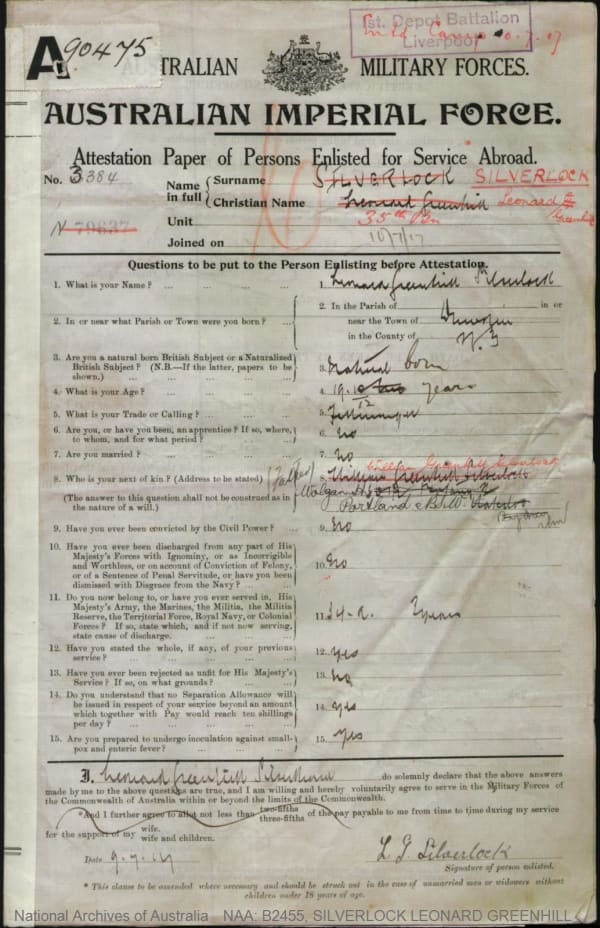 A 90475
1st. Depot Battalion
Liverpool
AUSTRALIAN MILITARY FORCES.
AUSTRALIAN IMPERIAL FORCE.
Attestation Paper of Persons Enlisted for Service Abroad.
No. 3384
Name in full { Surname SILVERLOCK SILVERLOCK
Christian Name Leonard Greenhill Leonard Greenhill
N 79637
Unit 35th Bn
Joined on 10/7/17
Questions to be put to the Person Enlisting before Attestation.
1. What is your Name ? ... ... ... 1. Leonard Greenhill Silverlock
2. In or near what Parish or Town were you born ? ... 2. In the Parish of in or
near the Town of
in the County of N.Z
3. Are you a natural born British Subject or a Naturalized
British Subject ? (N.B.—If the latter, papers to be
shown.) ... ... ... 3. Natural born
4. What is your Age ? ... ... ... 4. 19 years
5. What is your Trade or Calling ? ... ... 5.
6. Are you, or have you been, an apprentice ? If so, where,
to whom, and for what period ? ... ... 6. No
7. Are you married ? ... ... ... 7. No
8. Who is your next of kin ? (Address to be stated) (Father) 8. William Greenhill Silverlock
William Greenhill Silverlock
(The answer to this question shall not be construed as in
the nature of a will.)
Portland NSW
9. Have you ever been convicted by the Civil Power ? ... 9. No
10. Have you ever been discharged from any part of His
Majesty's Forces with Ignominy, or as Incorrigible
and Worthless, or on account of Conviction of Felony,
or of a Sentence of Penal Servitude, or have you been
dismissed with Disgrace from the Navy ? ... 10. No
11. Do you now belong to, or have you ever served in, His
Majesty's Army, the Marines, the Militia, the Militia
Reserve, the Territorial Force, Royal Navy, or Colonial
Forces ? If so, state which, and if not now serving,
state cause of discharge. ... ... ... 11. Years
12. Have you stated the whole, if any, of your previous
service ? ... ... ... 12. Yes
13. Have you ever been rejected as unfit for His Majesty's
Service ? If so, on what grounds ? ... ... 13. No
14. Do you understand that no Separation Allowance will
be issued in respect of your service beyond an amount
which together with Pay would reach ten shillings
per day ? ... ... ... 14. Yes
15. Are you prepared to undergo inoculation against small-
pox and enteric fever ? ... ... ... 15. Yes
I, Leonard Greenhill Silverlock do solemnly declare that the above answers
made by me to the above questions are true, and I am willing and hereby voluntarily agree to serve in the Military Forces of
the Commonwealth of Australia within or beyond the limits of the Commonwealth.
*And I further agree to allot not less than two-fifths three-fifths of the pay payable to me from time to time during my service
for the support of my wife. wife and children.
Date 9.7.17 L G Silverlock
Signature of person enlisted.
* This clause to be amended where necessary and should be struck out in the case of unmarried men or widowers without
children under 18 years of age.
National Archives of Australia NAA: B2455, SILVERLOCK LEONARD GREENHILL